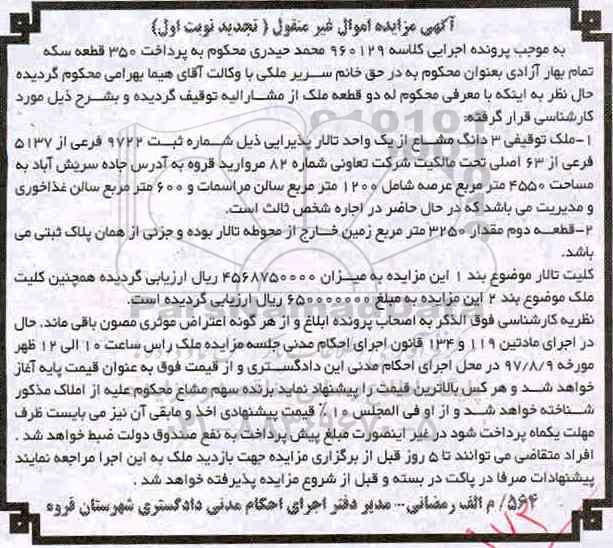 آگهی مزایده اموال غیر منقول ( تجدید نوبت اول)
به موجب پرونده اجرایی کلاسه ۹۶۰۱۲۹ محمد حیدری محکوم به پرداخت ۳۵۰ قطعه سکه
تمام بهار آزادی بعنوان محکوم به در حق خانم سریر ملکی با وکالت آقای هیما بهرامی محکوم گردیده
حال نظر به اینکه با معرفی محکوم له دو قطعه ملک از مشارالیه توقیف گردیده و بشرح ذیل مورد
کارشناسی قرار گرفته:
۱-ملک توقیفی ۳ دانگ مشاع از یک واحد تالار پذیرایی ذیل شماره ثبت ۹۷۲۲ فرعی از ۵۱۳۷
فرعی از ۶۳ اصلی تحت مالکیت شرکت تعاونی شماره ۸۲ مروارید قروه به آدرس جاده سریش آباد به
مساحت ۴۵۵۰ متر مربع عرصه شامل ۱۲۰۰ متر مربع سالن مراسمات و ۶۰۰ متر مربع سالن غذاخوری
و مدیریت می باشد که در حال حاضر در اجاره شخص ثالث است.
۲-قطعه دوم مقدار ۳۲۵۰ متر مربع زمین خارج از محوطه تالار بوده و جزئی از همان پلاک ثبتی می
باشد.
کلیت تالار موضوع بند ۱ این مزایده به میزان ۴۵۶۸۷۵۰۰۰۰ ریال ارزیابی گردیده همچنین کلیت
ملک موضوع بند ۲ این مزایده به مبلغ ۶۵۰۰۰۰۰۰۰ ریال ارزیابی گردیده است.
نظریه کارشناسی فوق الذکر به اصحاب پرونده ابلاغ و از هر گونه اعتراض موثری مصون باقی ماند. حال
در اجرای مادتین ۱۱۹ و ۱۳۴ قانون اجرای احکام مدنی جلسه مزایده ملک راس ساعت ۱۰ الی ۱۲ ظهر
مورخه ۹۷/۸/۹ در محل اجرای احکام مدنی این دادگستری و از قیمت فوق به عنوان قیمت پایه آغاز
خواهد شد و هر کس بالاترین قیمت را پیشنهاد نماید برنده سهم مشاع محکوم علیه از املاک مذکور
شناخته خواهد شد و از او فی المجلس ۱۰٪ قیمت پیشنهادی اخذ و مابقی آن نیز می بایست ظرف
مهلت یکماه پرداخت شود در غیر اینصورت مبلغ پیش پرداخت به نفع صندوق دولت ضبط خواهد شد .
افراد متقاضی می توانند تا ۵ روز قبل از برگزاری مزایده جهت بازدید ملک به این اجرا مراجعه نمایند
پیشنهادات صرفا در پاکت در بسته و قبل از شروع مزایده پذیرفته خواهد شد .
۵۶۴/ م الف رمضانی--- مدیر دفتر اجرای احکام مدنی دادگستری شهرستان قروه